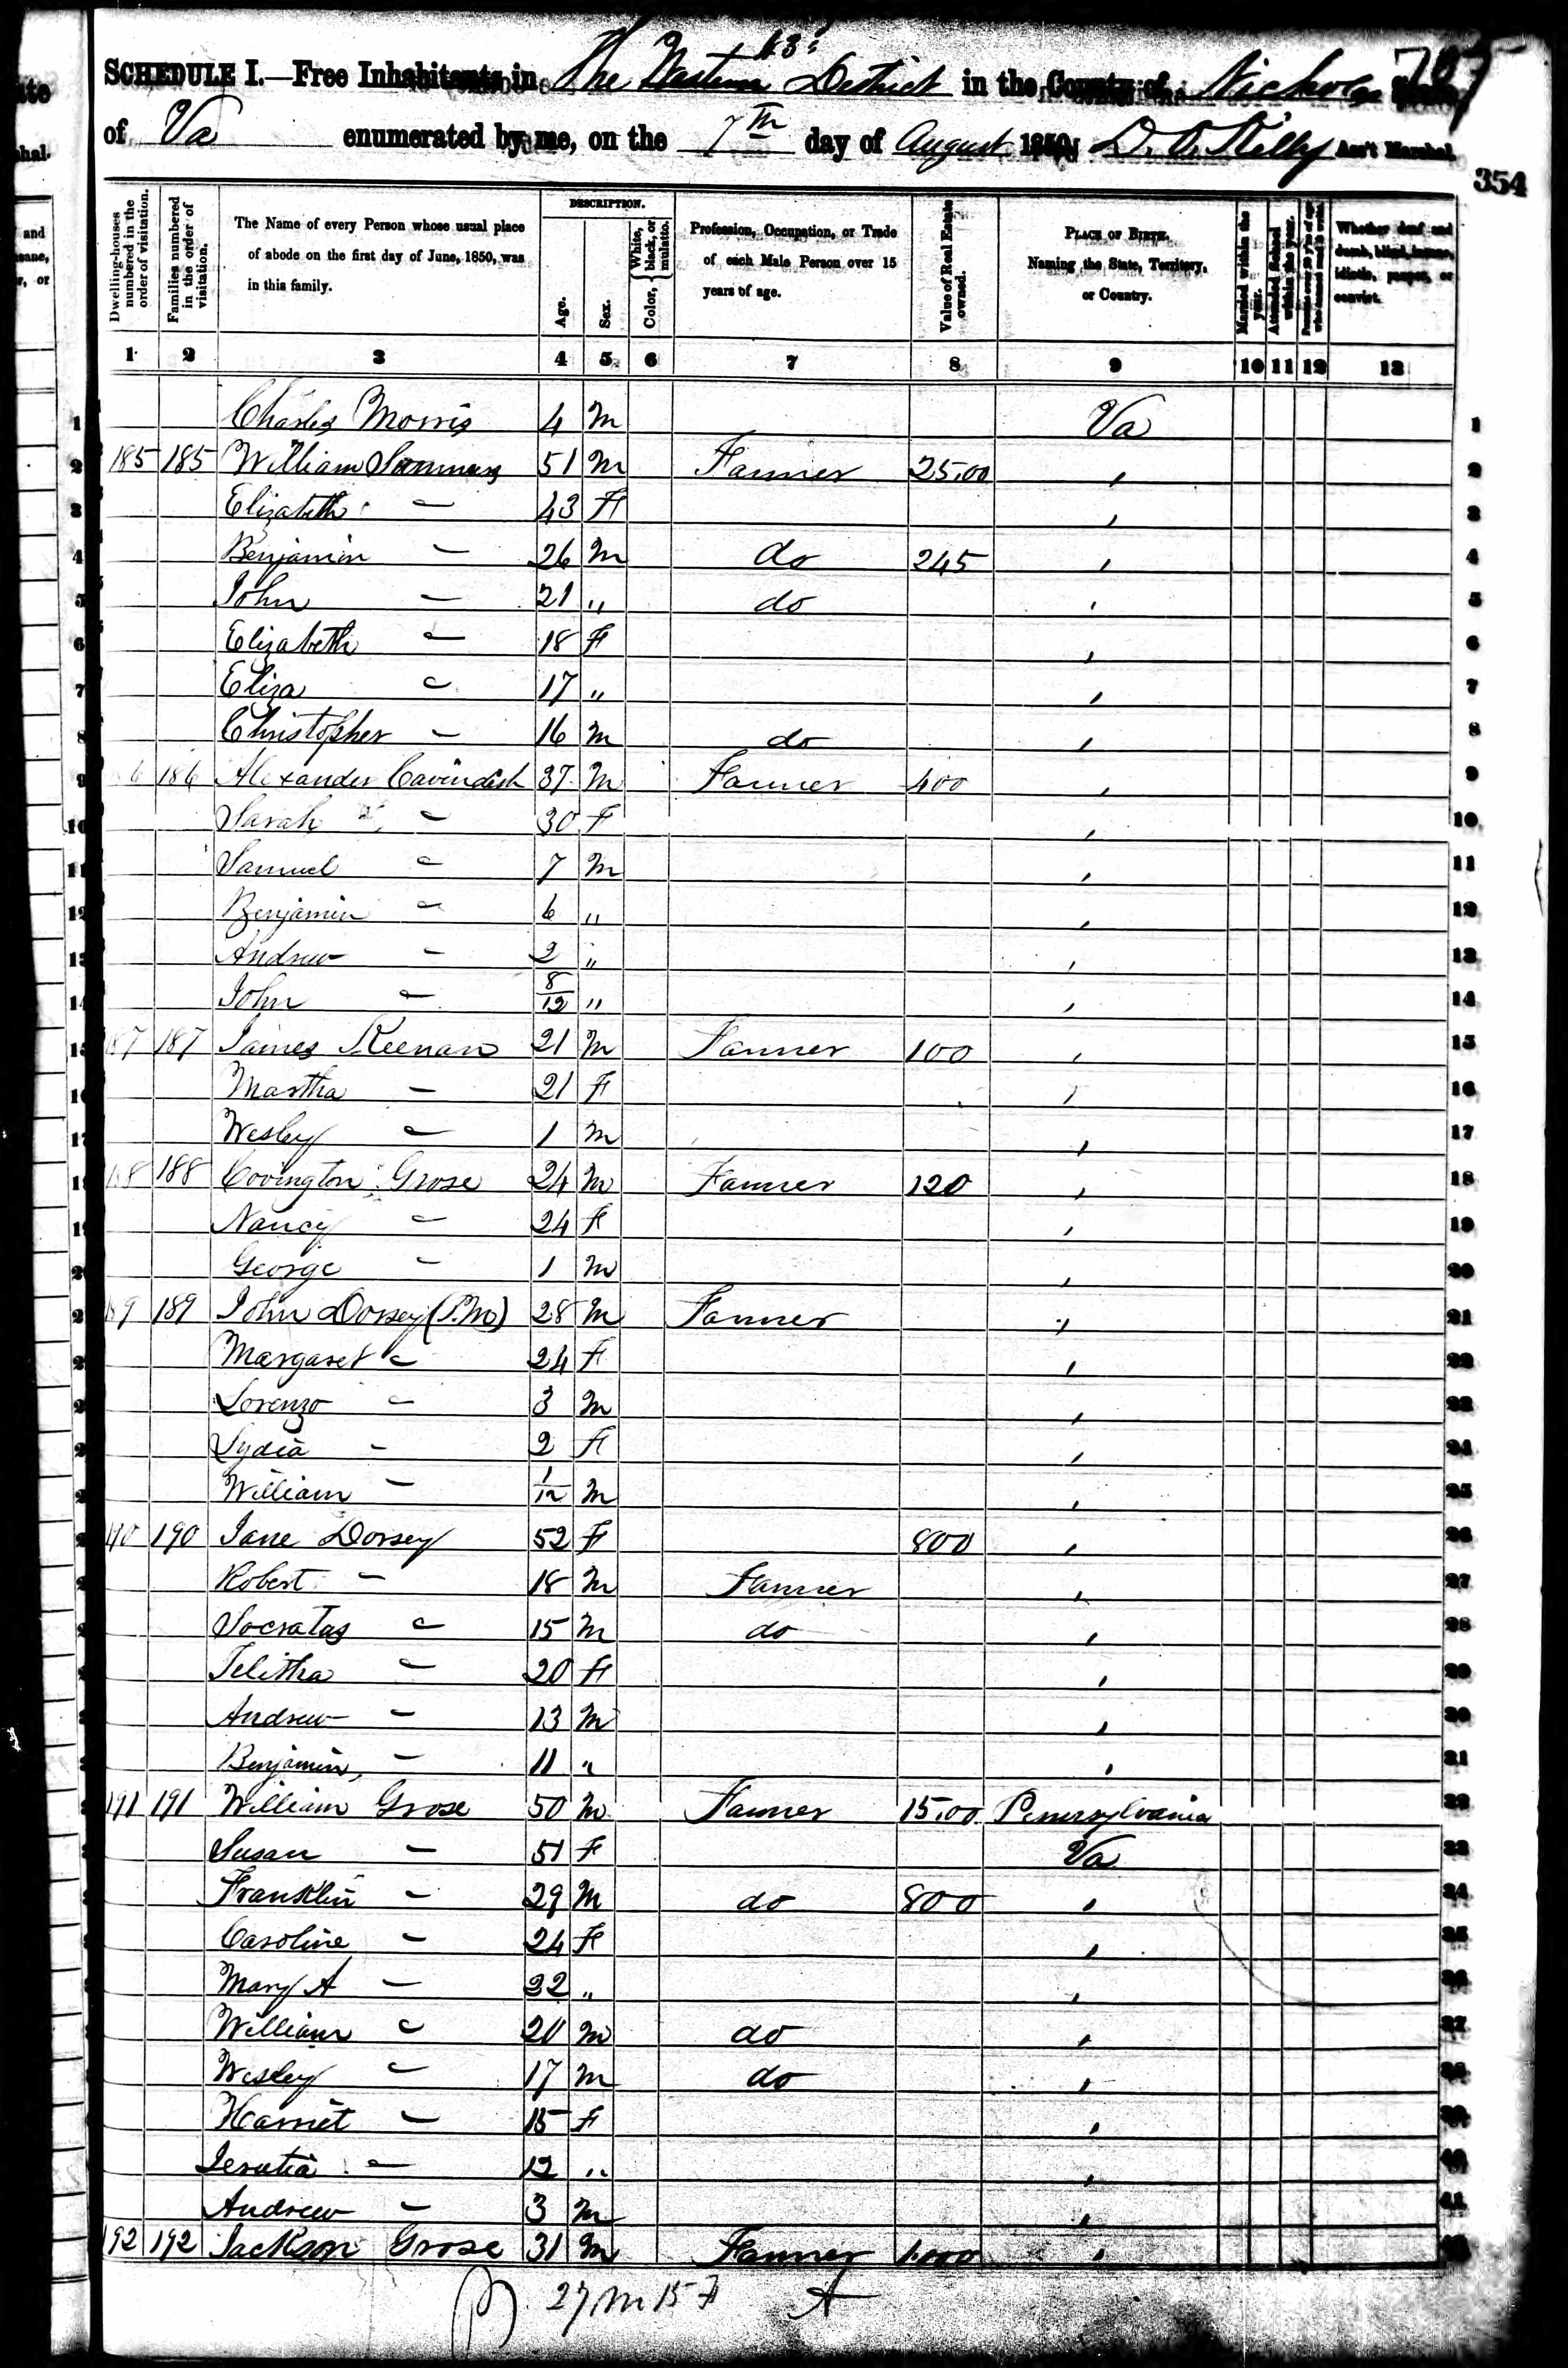 SCHEDULE I.—Free Inhabitants in The Western District in the County of Nicholas
of Va enumerated by me, on the 7th day of August 1850. Ass't Marshal.
354
Dwelling-houses numbered in the order of visitation.
Families numbered in the order of visitation.
The Name of every Person whose usual place of abode on the first day of June, 1850, was in this family.
DESCRIPTION.
Age.
Sex.
Color, { White, black, or mulatto.
Profession, Occupation, or Trade of each Male Person over 15 years of age.
Value of Real Estate owned.
PLACE OF BIRTH. Naming the State, Territory, or Country.
Married within the year.
Attended School within the year.
Whether deaf and dumb, blind, insane, idiotic, pauper, or convict.
1 2 3 4 5 6 7 8 9 10 11 12 13
1 Charles Morris 4 M Va 1
2 185 185 William Sammons 51 M Farmer 25.00 " 2
3 Elizabeth — 43 F " 3
4 Benjamin — 26 M do 245 " 4
5 John — 21 " do " 5
6 Elizabeth — 18 F " 6
7 Eliza — 17 " " 7
8 Christopher — 16 M do " 8
9 186 Alexander Cavindish 37 M Farmer 400 " 9
10 Sarah — 30 F " 10
11 Samuel — 7 M " 11
12 Benjamin — 6 " " 12
13 Andrew — 2 " " 13
14 John — 8/12 " " 14
15 187 187 James Keenan 21 M Farmer 100 " 15
16 Martha — 21 F " 16
17 Wesley — 1 M " 17
18 188 188 Covington Grose 24 M Farmer 120 " 18
19 Nancy — 24 F " 19
20 George — 1 M " 20
189 189 John Dorsey (P.M) 28 M Farmer " 21
Margaret — 24 F " 22
Lorenzo — 3 M " 23
Lydia — 2 F " 24
William — 1/12 M " 25
190 190 Jane Dorsey 52 F 800 " 26
Robert — 18 M Farmer " 27
Socratas — 15 M do " 28
Telitha — 20 F " 29
Andrew — 13 M " 30
Benjamin — 11 " " 31
191 191 William Grose 50 M Farmer 15.00 Pennsylvania 32
Susan — 51 F Va 33
Franklin — 29 M do 800 " 34
Caroline — 24 F " 35
Mary A — 22 " " 36
William — 20 M do " 37
Wesley — 17 M do " 38
Harriet — 15 F " 39
Jerutia — 12 " " 40
Andrew — 3 M " 41
192 192 Jackson Grose 31 M Farmer 1.000 " 42
27 M 15 F A